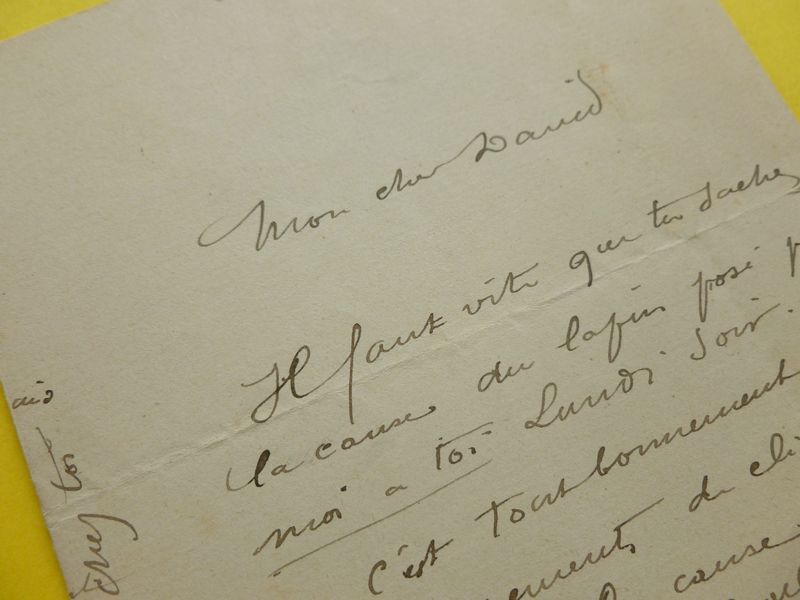 Mon cher David
Il faut vite que tu saches
la cause du lapin posé
moi a toi Lundi soir.
c'est tout bonnement
du
cause
toi